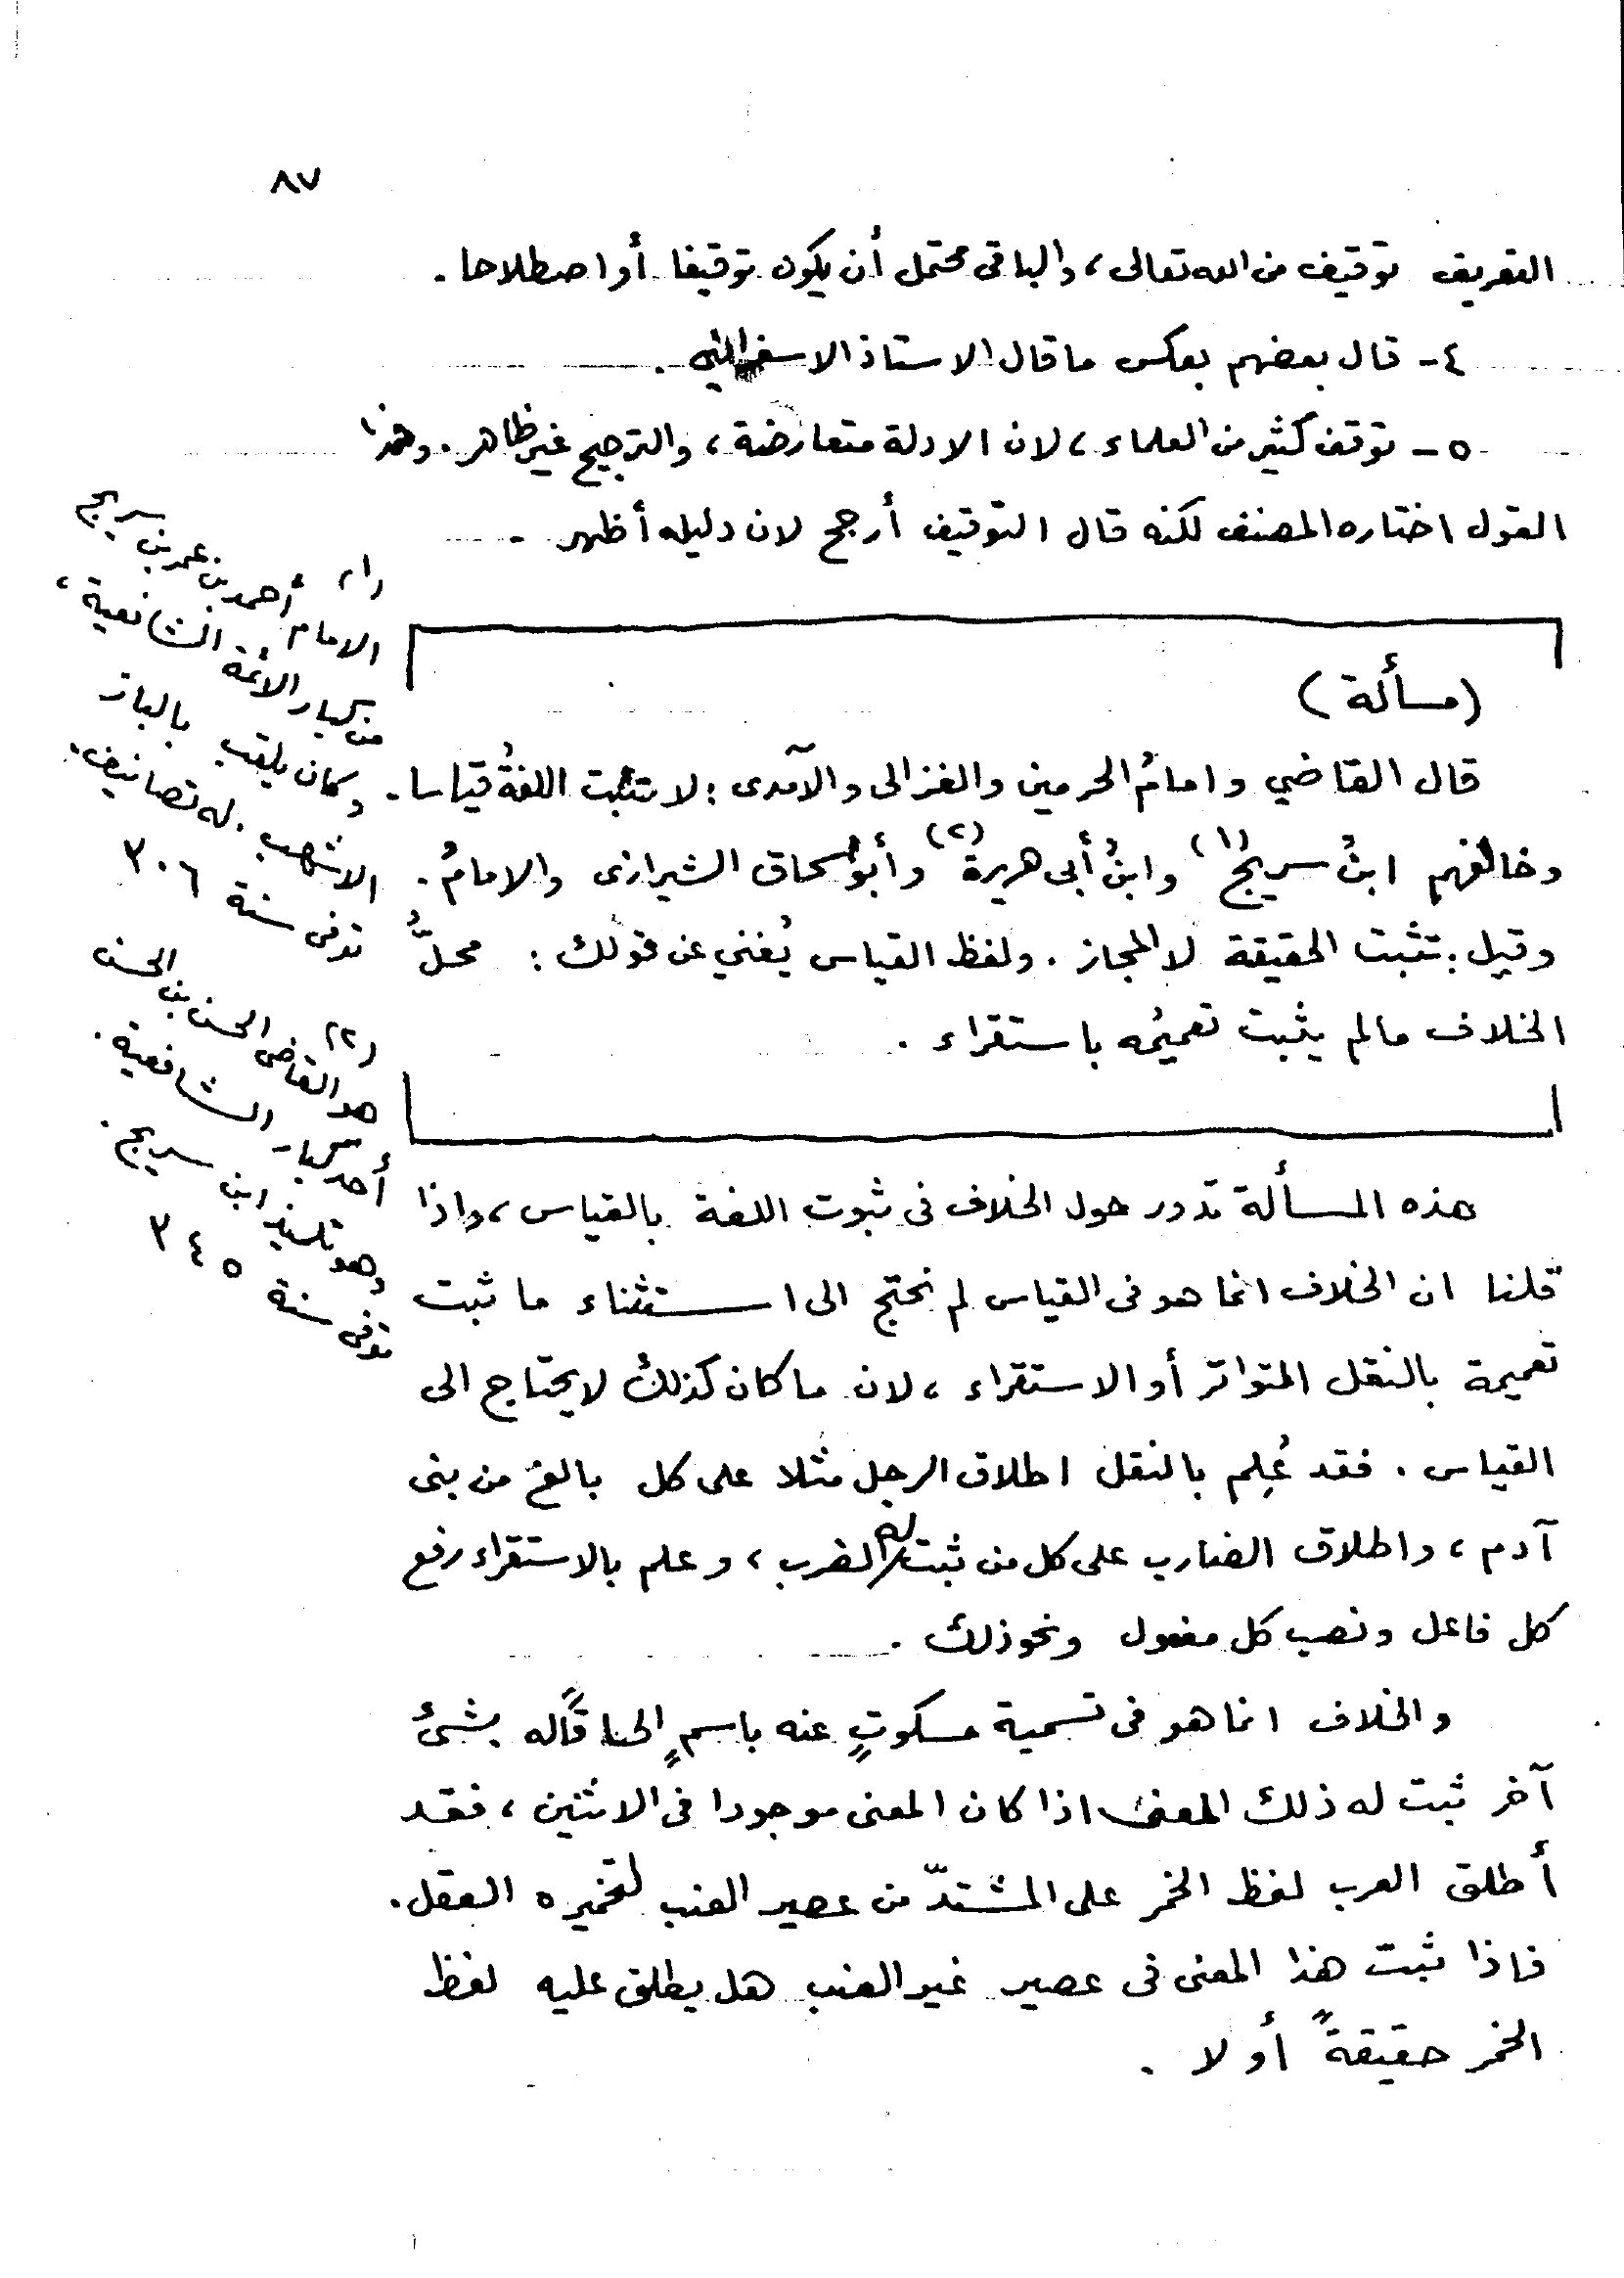 ٨٧
التعريف توقيف من الله تعالى، والباقى محتمل أن يكون توقيفا أو اصطلاحا.
٤- قال بعضهم بعكس ما قال الاستاذ الاسفرائني.
٥- توقف كثير من العلماء، لان الادلة متعارضة، والترجيح غير ظاهر. وهذا
القول اختاره المصنف لكنه قال التوقيف أرجح لان دليله أظهر.
(مسألة)
قال القاضي وامامُ الحرمين والغزالى والآمدى: لا تثبت اللغةُ قياسا.
وخالفهم ابنُ سريج (١) وابنُ أبى هريرة (٢) وأبو اسحاق الشيرازى والامامُ.
وقيل: تثبت الحقيقة لا المجاز. ولفظ القياس يُغني عن قولك: محلُّ
الخلاف مالم يثبت تعميمُه باستقراء.
هذه المسألة تدور حول الخلاف فى ثبوت اللغة بالقياس، واذا
قلنا ان الخلاف انما هو فى القياس لم نحتج الى استثناء ما ثبت
تعميمة بالنقل المتواتر أو الاستقراء، لان ما كان كذلك لا يحتاج الى
القياس. فقد عُلِم بالنقل اطلاق الرجل مثلا على كل بالغ من بنى
آدم، واطلاق الضارب على كل من ثبت له الضرب، وعلم بالاستقراء رفع
كل فاعل ونصب كل مفعول ونحو ذلك.
والخلاف انما هو فى تسمية مسكوتٍ عنه باسمٍ الحاقًا له بشئ
آخر ثبت له ذلك المعنى اذا كان المعنى موجودا فى الاثنين، فقد
أطلق العرب لفظ الخمر على المشتدّ من عصير العنب لتخميره العقل.
فاذا ثبت هذا المعنى فى عصير غير العنب هل يطلق عليه لفظ
الخمر حقيقةً أو لا.
(١)
الامام أحمد بن عمر بن سريج
من كبار الائمة الشافعية،
وكان يلقب بالباز
الاشهب. له تصانيف.
توفى سنة ٣٠٦
(٢)
هو القاضى الحسن بن الحسن
أحد كبار الشافعية.
وهو تلميذ ابن سريج.
توفى سنة ٣٤٥